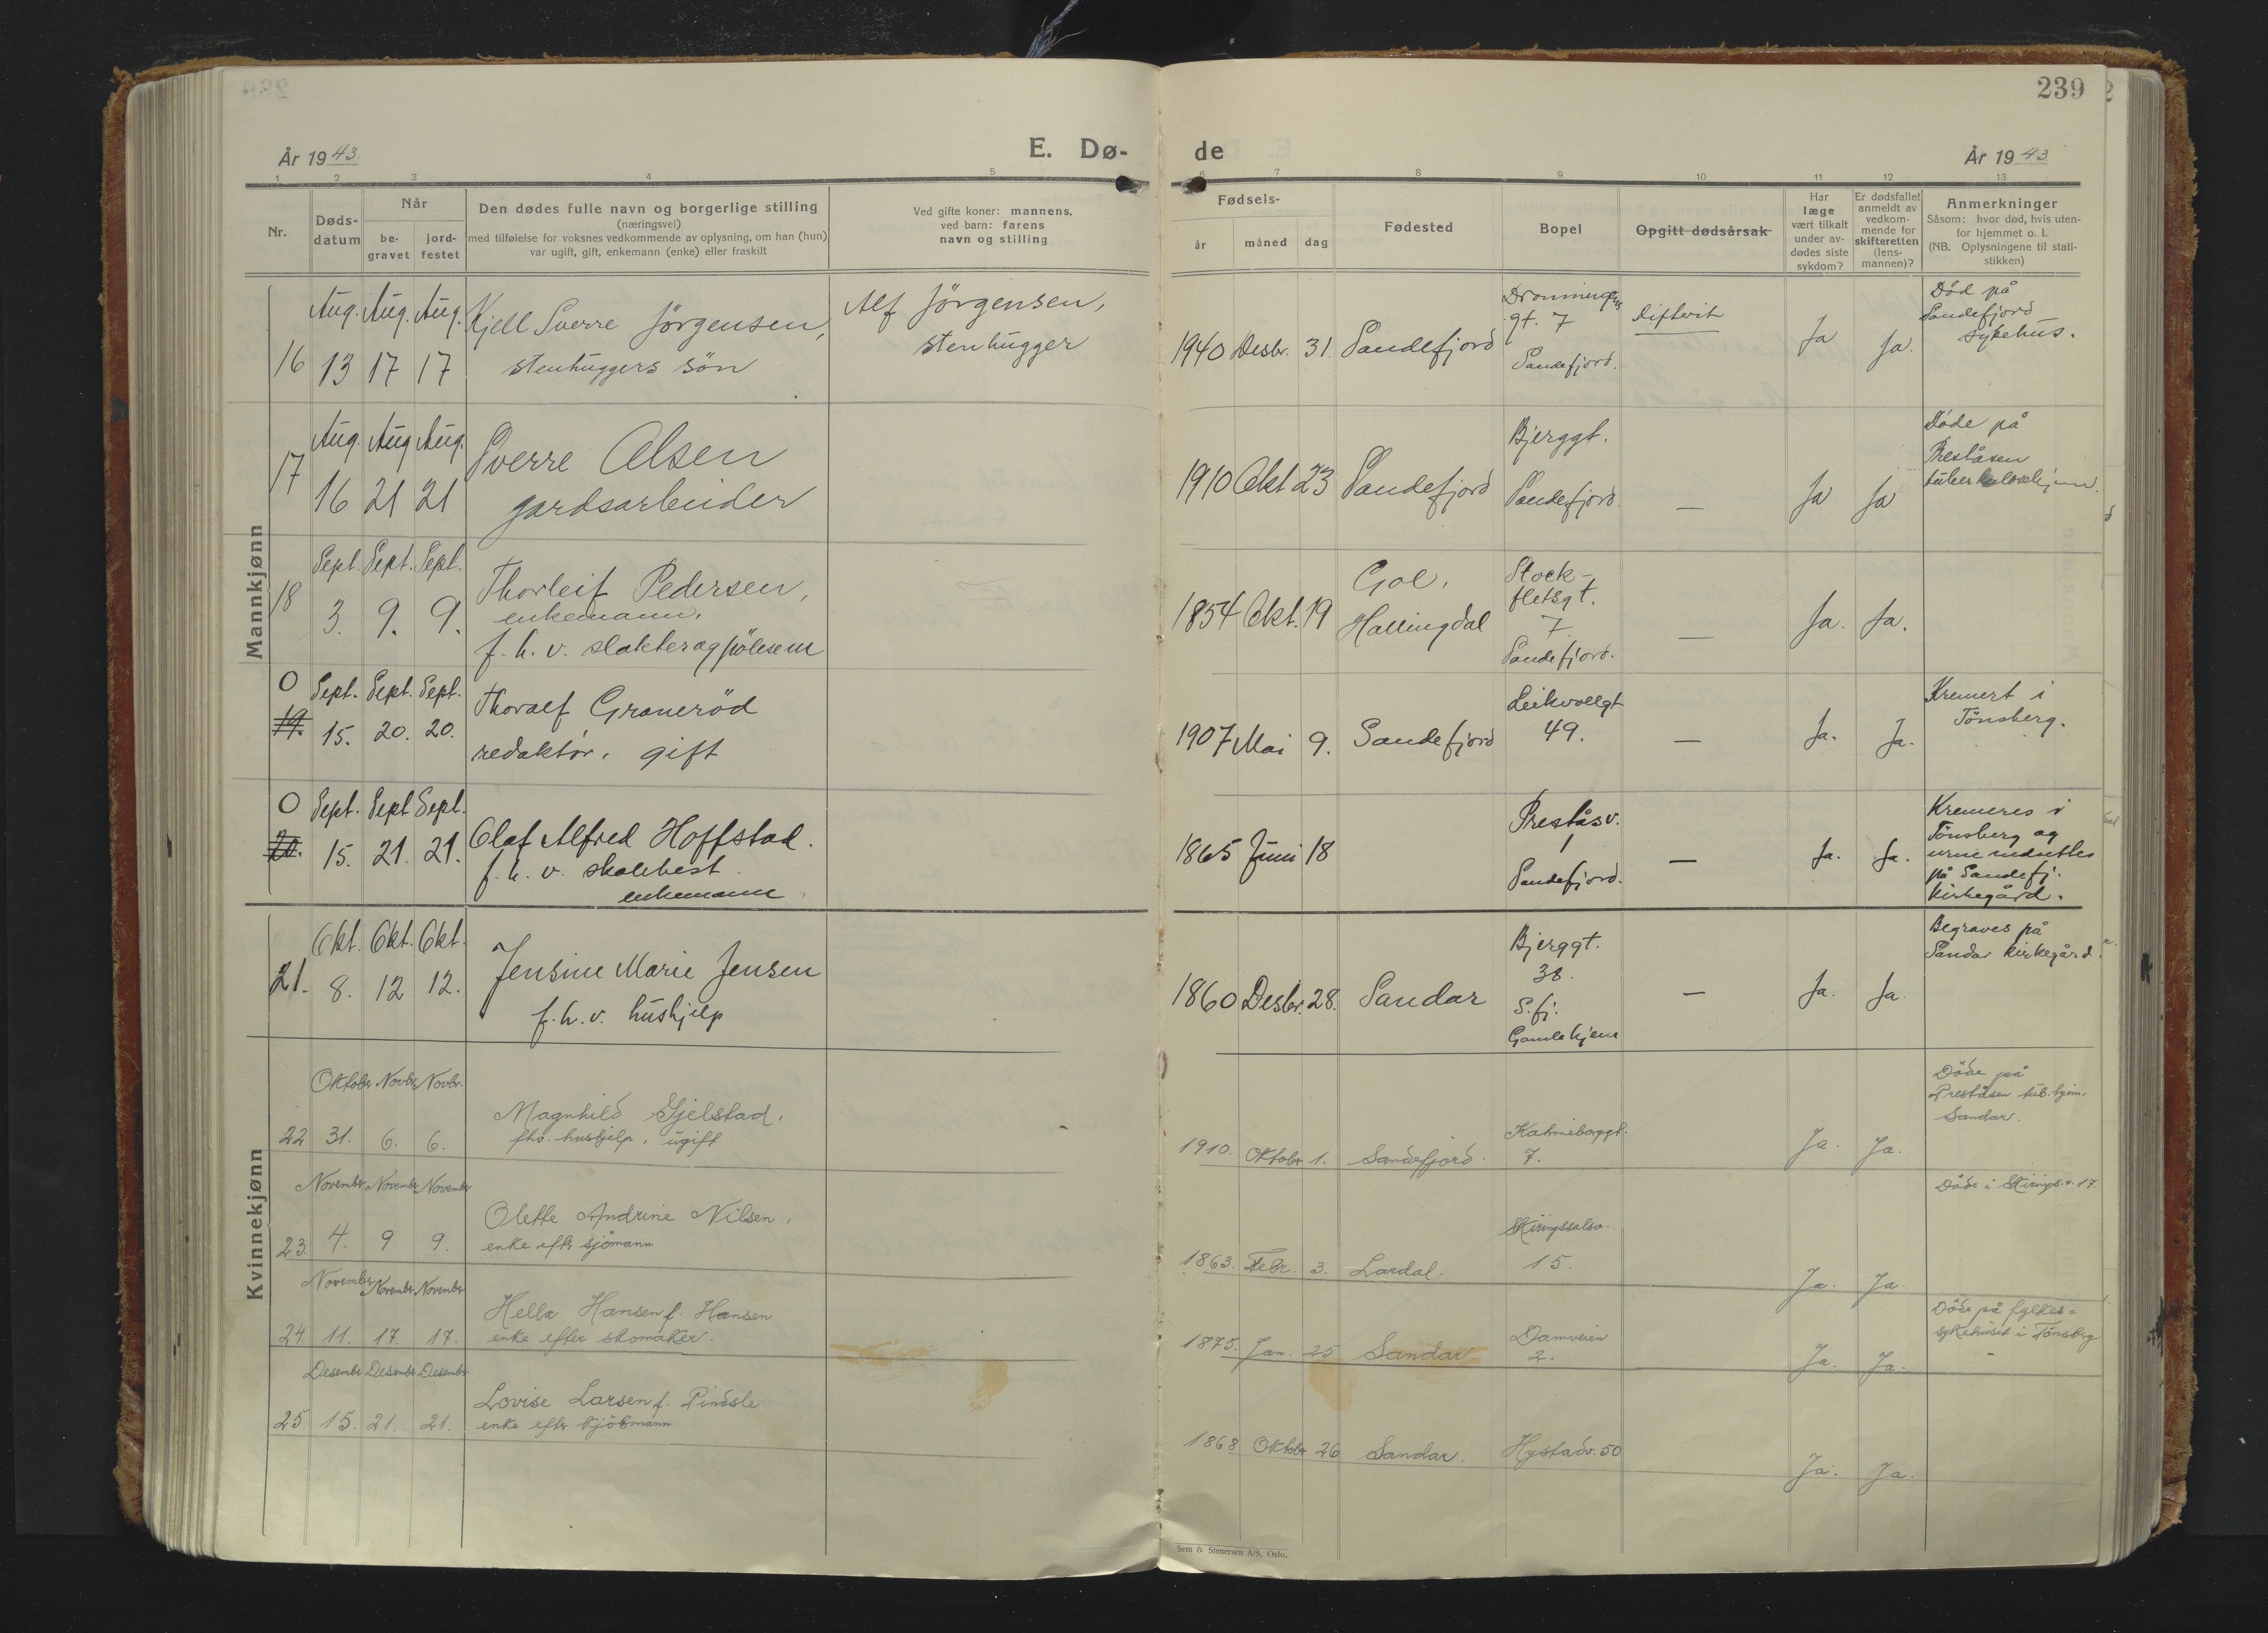 239
År 1943.
E. Dø-
de
År 1943
1 2 3 4 5 6 7 8 9 10 11 12 13
Nr.
Døds-
datum
Når
be-
gravet
jord-
festet
Den dødes fulle navn og borgerlige stilling
(næringsvei)
med tilføielse for voksnes vedkommende av oplysning, om han (hun)
var ugift, gift, enkemann (enke) eller fraskilt
Ved gifte koner: mannens,
ved barn: farens
navn og stilling
Fødsels-
år måned dag
Fødested
Bopel
Opgitt dødsårsak
Har
læge
vært tilkalt
under av-
dødes siste
sykdom?
Er dødsfallet
anmeldt av
vedkom-
mende for
skifteretten
(lens-
mannen)?
Anmerkninger
Såsom: hvor død, hvis uten-
for hjemmet o. l.
(NB. Oplysningene til stati-
stikken)
Mannkjønn
Aug. Aug. Aug.
16 13 17 17
Kjell Sverre Jörgensen,
stenhuggers sön
Alf Jörgensen,
stenhugger
1940 Desbr. 31. Sandefjord
Dronningens
gt. 7
Sandefjord.
difterit
Ja Ja.
Död på
Sandefjord
sykehus.
Aug. Aug. Aug.
17 16 21 21
Sverre Olsen
gardsarbeider
1910 Okt 23 Sandefjord
Bjerggt.
Sandefjord.
—
Ja Ja
Döde på
Preståsen
tuberkulosehjem.
Sept. Sept. Sept.
18 3. 9. 9.
Thorleif Pedersen,
enkemann.
f. h. v. slakter og pölsem
1854 Okt. 19
Gol,
Hallingdal
Stock-
fletsgt.
7
Sandefjord.
—
Ja. Ja.
0 Sept. Sept. Sept.
19. 15. 20. 20.
Thoralf Graneröd
redaktör. gift
1907 Mai 9. Sandefjord
Leikvollgt
49.
—
Ja. Ja.
Kremert i
Tönsberg.
0 Sept. Sept Sept.
20. 15. 21. 21.
Olaf Alfred Hoffstad.
f. h. v. skolebest.
enkemann.
1865 Juni 18
Preståsv.
1
Sandefjord.
—
Ja. Ja.
Kremeres i
Tönsberg og
urne nedsettes
på Sandefj.
kirkegård.
Kvinnekjønn
Okt. Okt. Okt.
21. 8. 12 12.
Jensine Marie Jensen
f. h. v. hushjelp
1860 Desbr. 28. Sandar
Bjerggt.
38.
S.fj.
Gamlehjem
—
Ja. Ja.
Begraves på
Sandar kirkegård.
Oktober Novbr. Novbr.
22 31. 6. 6.
Magnhild Gjelstad.
fhv. hushjelp, ugift
1910. Oktober 1. Sandefjord.
7.
Ja. Ja.
Döde på
Preståsen tub.hjem.
Sandar.
November November November
23. 4. 9 9.
Olette Andrine Nilsen,
enke eftr sjömann
1863. Febr. 3. Lardal.
Skiringssalsv.
15.
Ja. Ja.
Döde i Skirings.v. 17.
November November November
24 11. 17. 17.
Hella Hansen f. Hansen
enke efter skomaker.
1875. Jan. 25 Sandar.
Damveien
2.
Ja. Ja.
Döde på fylkes=
sykehuset i Tönsberg
Desember Desember Desember
25. 15. 21. 21.
Lovise Larsen f. Pindsle
enke eftr kjöbmann
1868 Oktober 26 Sandar.
Hystadv. 50
Ja. Ja.
Sem & Stenersen A/S, Oslo.